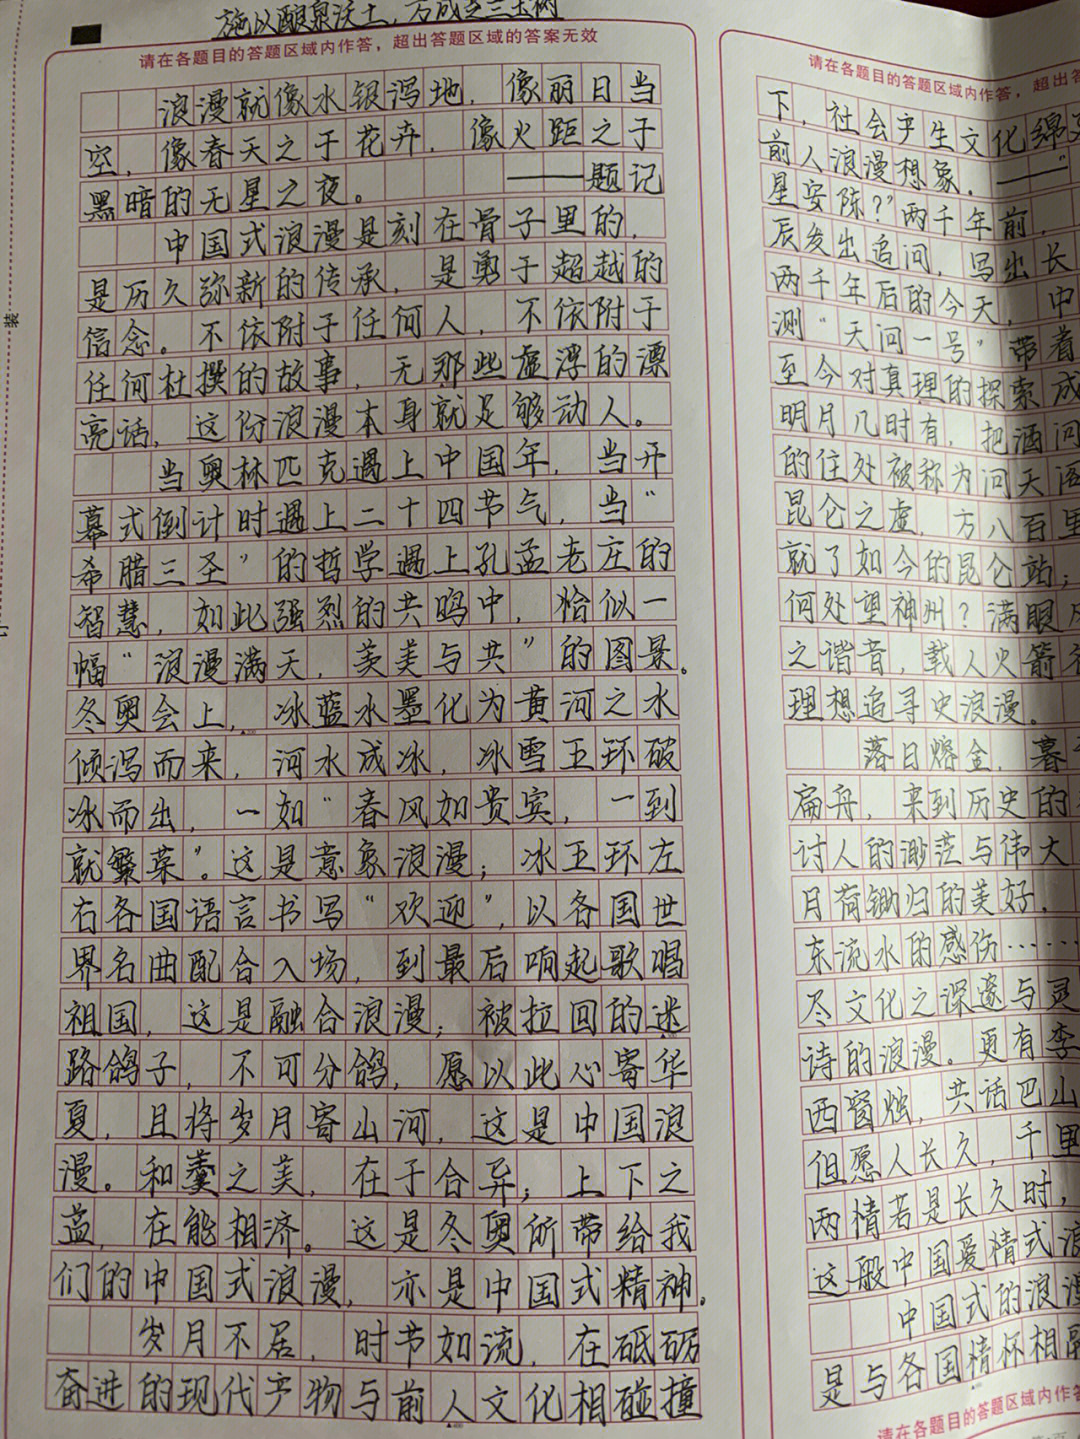 施以酿泉沃土，方成芝兰玉树
请在各题目的答题区域内作答，超出答题区域的答案无效
浪漫就像水银泻地，像丽日当
空，像春天之于花卉，像火距之于
黑暗的无星之夜。——题记
中国式浪漫是刻在骨子里的，
是历久弥新的传承，是勇于超越的
信念。不依附于任何人，不依附于
任何杜撰的故事，无那些虚浮的漂
亮话，这份浪漫本身就足够动人。
当奥林匹克遇上中国年，当开
幕式倒计时遇上二十四节气，当“
希腊三圣”的哲学遇上孔孟老庄的
智慧，如此强烈的共鸣中，恰似一
幅“浪漫满天，美美与共”的图景。
冬奥会上，冰蓝水墨化为黄河之水
倾泻而来，河水成冰，冰雪五环破
冰而出，一如“春风如贵宾，一到
就繁荣”。这是意象浪漫；冰五环左
右各国语言书写“欢迎”，以各国世
界名曲配合入场，到最后响起歌唱
祖国，这是融合浪漫；被拉回的迷
路鸽子，不可分鸽，愿以此心寄华
夏，且将岁月寄山河，这是中国浪
漫。和羹之美，在于合异；上下之
益，在能相济。这是冬奥所带给我
们的中国式浪漫，亦是中国式精神。
岁月不居，时节如流，在砥砺
奋进的现代产物与前人文化相碰撞
装
请在各题目的答题区域内作答，超出答
下，社会产生文化绵
前人浪漫想象。——“
星安陈？”两千年前，
辰发出追问，写出长
两千年后的今天，中
测“天问一号”带着
至今对真理的探索成
明月几时有，把酒问
的住处被称为问天阁
昆仑之虚，方八百里
就了如今的昆仑站；
何处望神州？满眼风
之谐音，载人火箭
理想追寻史浪漫。
落日熔金，暮
扁舟，来到历史的
讨人的渺茫与伟大
月荷锄归的美好，
东流水的感伤……
尽文化之深邃与灵
诗的浪漫。更有李
西窗烛，共话巴山
但愿人长久，千里
两情若是长久时，
这般中国爱情式浪
中国式的浪漫
是与各国情怀相融
请在各题目的答题区域内作答